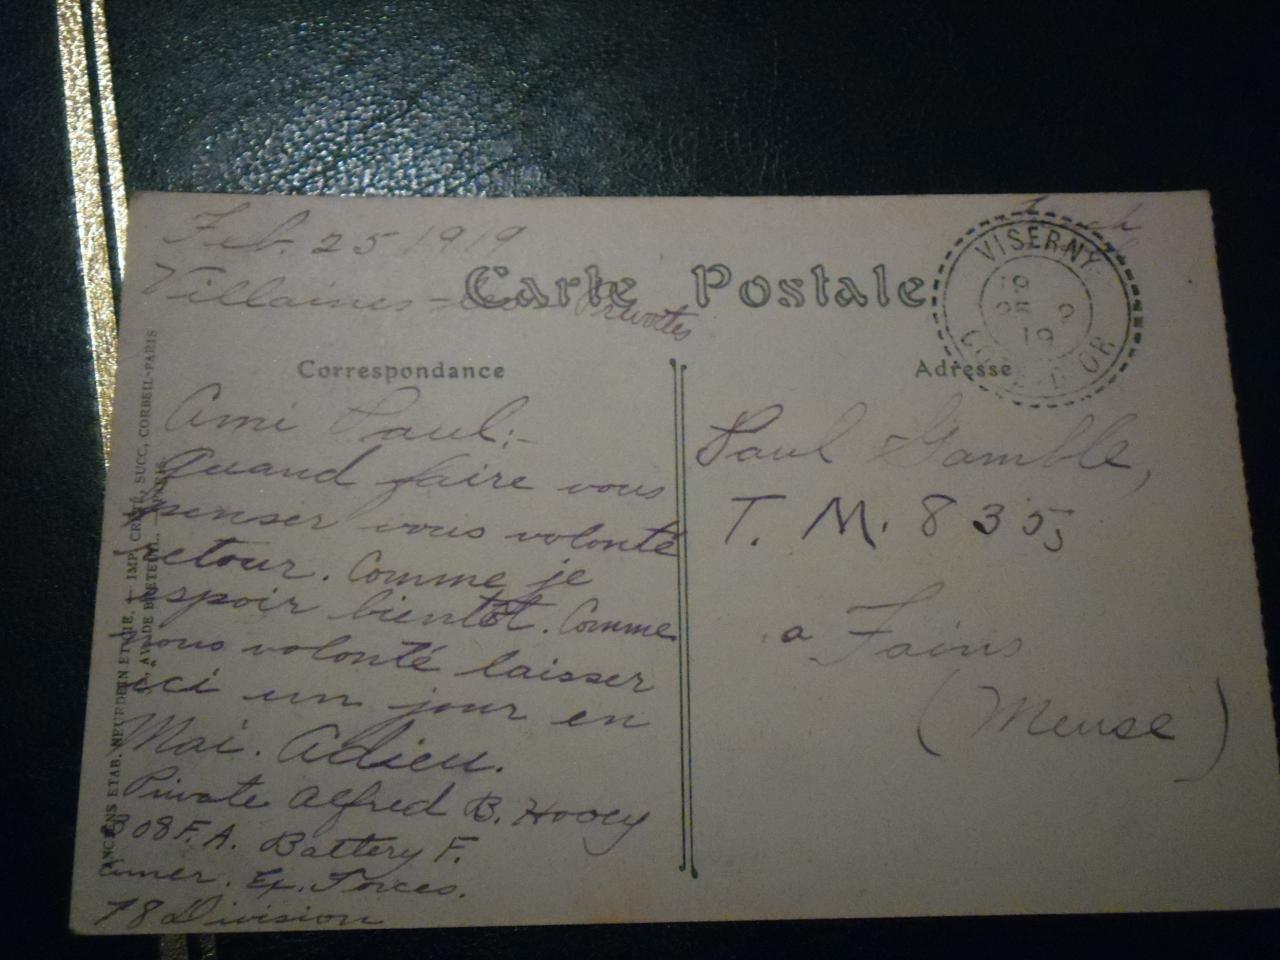 Feb. 25 1919
Villaines - Les Prevotes
Carte Postale
VISERNY
19
25 2
19
COTE-D'OR
Correspondance
Adresse
Ami Paul:-
Quand faire vous
penser vous volonté
retour. Comme je
espoir bientôt. Comme
nous volonté laisser
ici un jour en
Mai. Adieu.
Private Alfred B. Hooey
308 F.A. Battery F.
Amer. Ex. Forces.
78 Division
Paul Gamble,
T. M. 835,
a Fains
(Meuse)
ANCIENS ETAB. NEURDEIN ET CIE. — IMP. CRÉTÉ, SUCC, CORBEIL-PARIS
AV. DE BRETEUIL. — PARIS